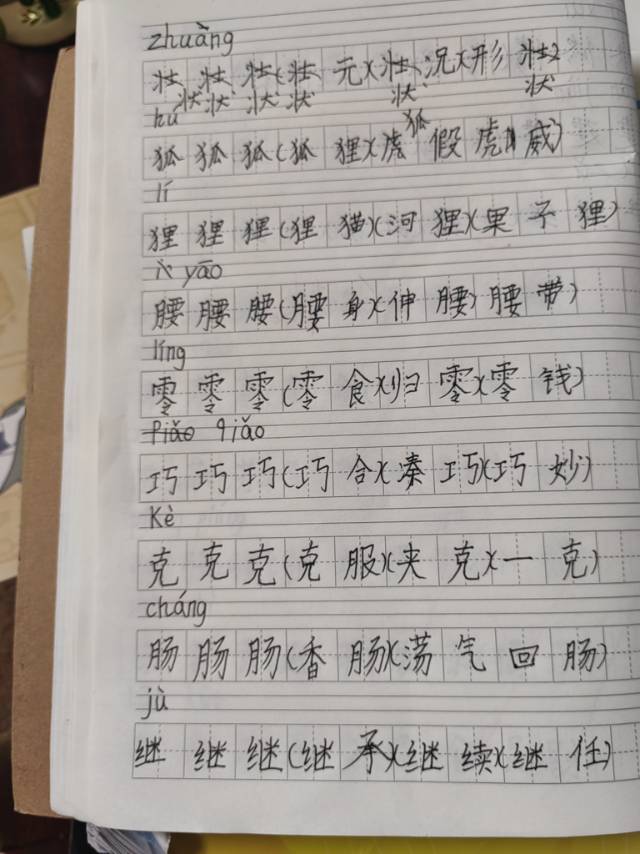 zhuàng
壮 壮 壮(壮 元)(壮 况)(形 壮)
状 状 状 状 状 状
hú
狐 狐 狐(狐 狸)(虎 假 虎 威)
狐
lí
狸 狸 狸(狸 猫)(河 狸)(果 子 狸)
yāo
腰 腰 腰(腰 身)(伸 腰)(腰 带)
líng
零 零 零(零 食)(归 零)(零 钱)
Piǎo qiǎo
巧 巧 巧(巧 合)(凑 巧)(巧 妙)
Kè
克 克 克(克 服)(夹 克)(一 克)
cháng
肠 肠 肠(香 肠)(荡 气 回 肠)
jù
继 继 继(继 承)(继 续)(继 任)